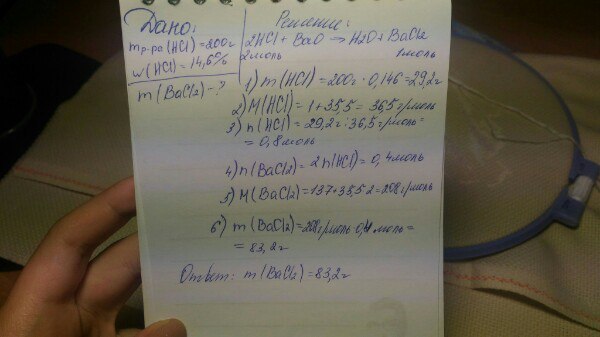 Дано:
mр-ра(HCl)=200г
w(HCl)=14,6%
m(BaCl2)-?
Решение:
2HCl + BaO → H2O + BaCl2
2моль 1моль
1) m(HCl)=200г·0,146=29,2г
2) M(HCl)=1+35,5=36,5г/моль
3) n(HCl)=29,2г:36,5г/моль=
=0,8моль
4) n(BaCl2)=2n(HCl)=0,4моль
5) M(BaCl2)=137+35,5·2=208г/моль
6) m(BaCl2)=208г/моль·0,4моль=
=83,2г
Ответ: m(BaCl2)=83,2г